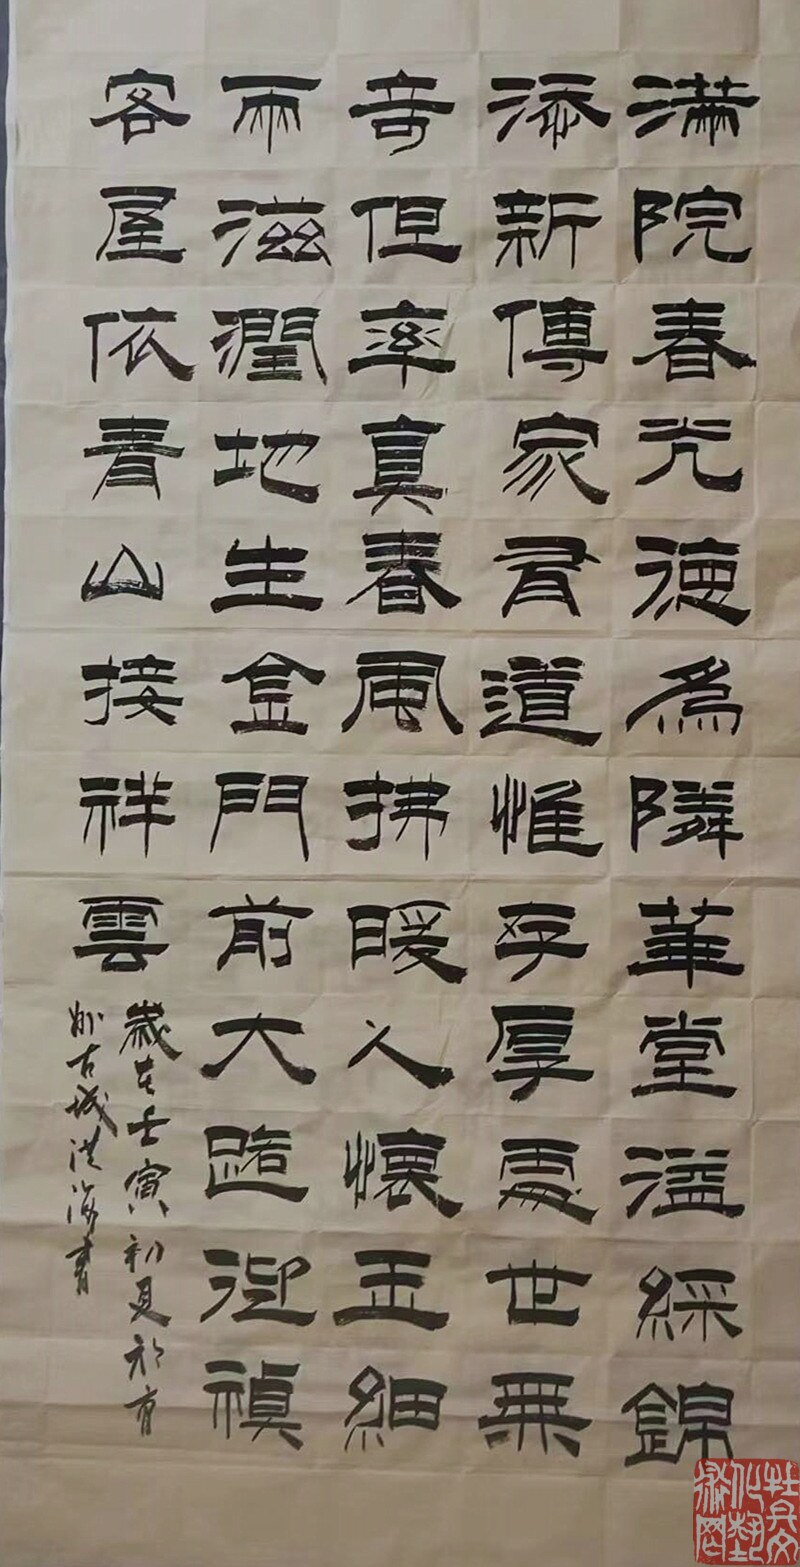 滿院春光德為隣華堂溢綵錦
添新傳家有道惟存厚處世無
奇但率真春風拂暖人懷玉細
雨滋潤地生金門前大路迎禎
客屋依青山接祥雲
歲在壬寅初夏於
古城洪海書